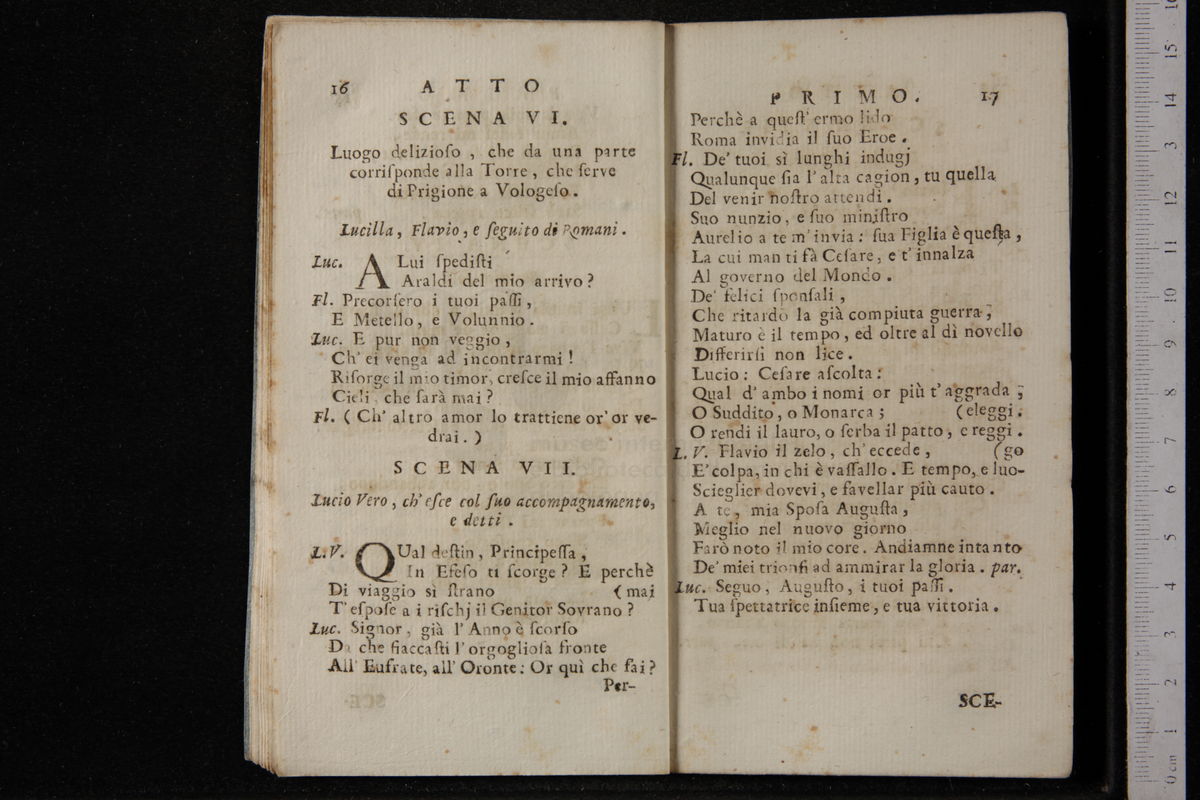 16 ATTO
SCENA VI.
Luogo delizioſo , che da una parte
corriſponde alla Torre , che ſerve
di Prigione a Vologeſo .
Lucilla, Flavio, e ſeguito di Romani .
Luc. A Lui ſpediſti
Araldi del mio arrivo?
Fl. Precorſero i tuoi paſſi ,
E Metello, e Volunnio .
Luc. E pur non veggio ,
Ch' ei venga ad incontrarmi !
Riſorge il mio timor, creſce il mio affanno
Cieli, che ſarà mai ?
Fl. ( Ch' altro amor lo trattiene or' or ve-
drai. )
SCENA VII.
Lucio Vero , ch' eſce col ſuo accompagnamento,
e detti .
L.V. QUal deſtin , Principeſſa ,
In Efeſo ti ſcorge ? E perchè
Di viaggio sì ſtrano (mai
T' eſpoſe a i riſchj il Genitor Sovrano ?
Luc. Signor, già l' Anno è ſcorſo
Da che fiaccaſti l' orgoglioſa fronte
All' Eufrate, all' Oronte: Or quì che fai?
Per-
PRIMO. 17
Perchè a queſt' ermo lido
Roma invidia il ſuo Eroe .
Fl. De' tuoi sì lunghi indugj
Qualunque ſia l' alta cagion, tu quella
Del venir noſtro attendi .
Suo nunzio, e ſuo miniſtro
Aurelio a te m' invia : ſua Figlia è queſta ,
La cui man ti fà Ceſare, e t' innalza
Al governo del Mondo .
De' felici ſponſali ,
Che ritardò la già compiuta guerra ,
Maturo è il tempo, ed oltre al dì novello
Differirſi non lice.
Lucio : Ceſare aſcolta :
Qual d' ambo i nomi or più t' aggrada ;
O Suddito, o Monarca ; (eleggi .
O rendi il lauro, o ſerba il patto, e reggi .
L. V. Flavio il zelo, ch' eccede , (go
E' colpa, in chi è vaſſallo. E tempo, e luo-
Scieglier dovevi, e favellar più cauto .
A te, mia Spoſa Auguſta ,
Meglio nel nuovo giorno
Farò noto il mio core. Andiamne intanto
De' miei trionfi ad ammirar la gloria. par.
Luc. Seguo, Auguſto, i tuoi paſſi .
Tua ſpettatrice inſieme, e tua vittoria .
SCE-